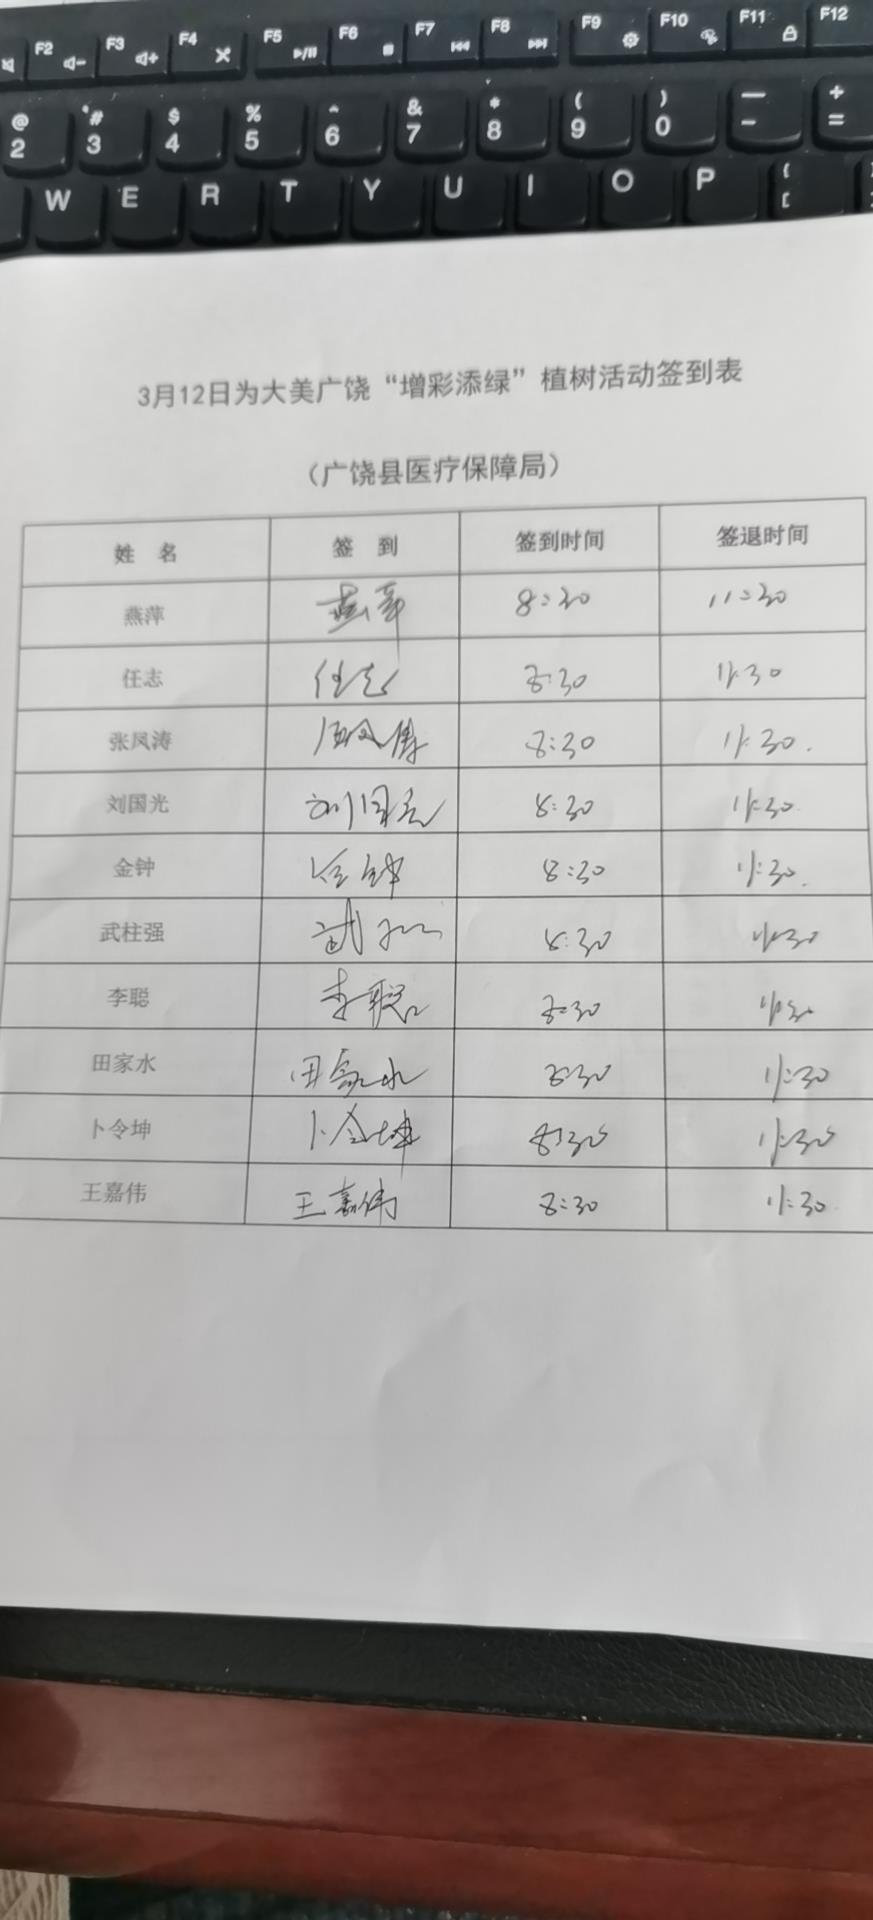 F2 F3 F4 F5 F6 F7 F8 F9 F10 F11 F12
@ # $ % ^ & * ( ) — +
2 3 4 5 6 7 8 9 0 - =
W E R T Y U I O P { [
3月12日为大美广饶“增彩添绿”植树活动签到表
（广饶县医疗保障局）
姓 名 签 到 签到时间 签退时间
燕萍 燕萍 8:30 11:30
任志 任志 8:30 11:30
张凤涛 张凤涛 8:30 11:30.
刘国光 刘国光 8:30 11:30
金钟 金钟 8:30 11:30.
武柱强 武 8:30 11:30
李聪 李聪 8:30 11:30
田家水 田家水 8:30 11:30
卜令坤 卜令坤 8:30 11:30
王嘉伟 王嘉伟 8:30 11:30